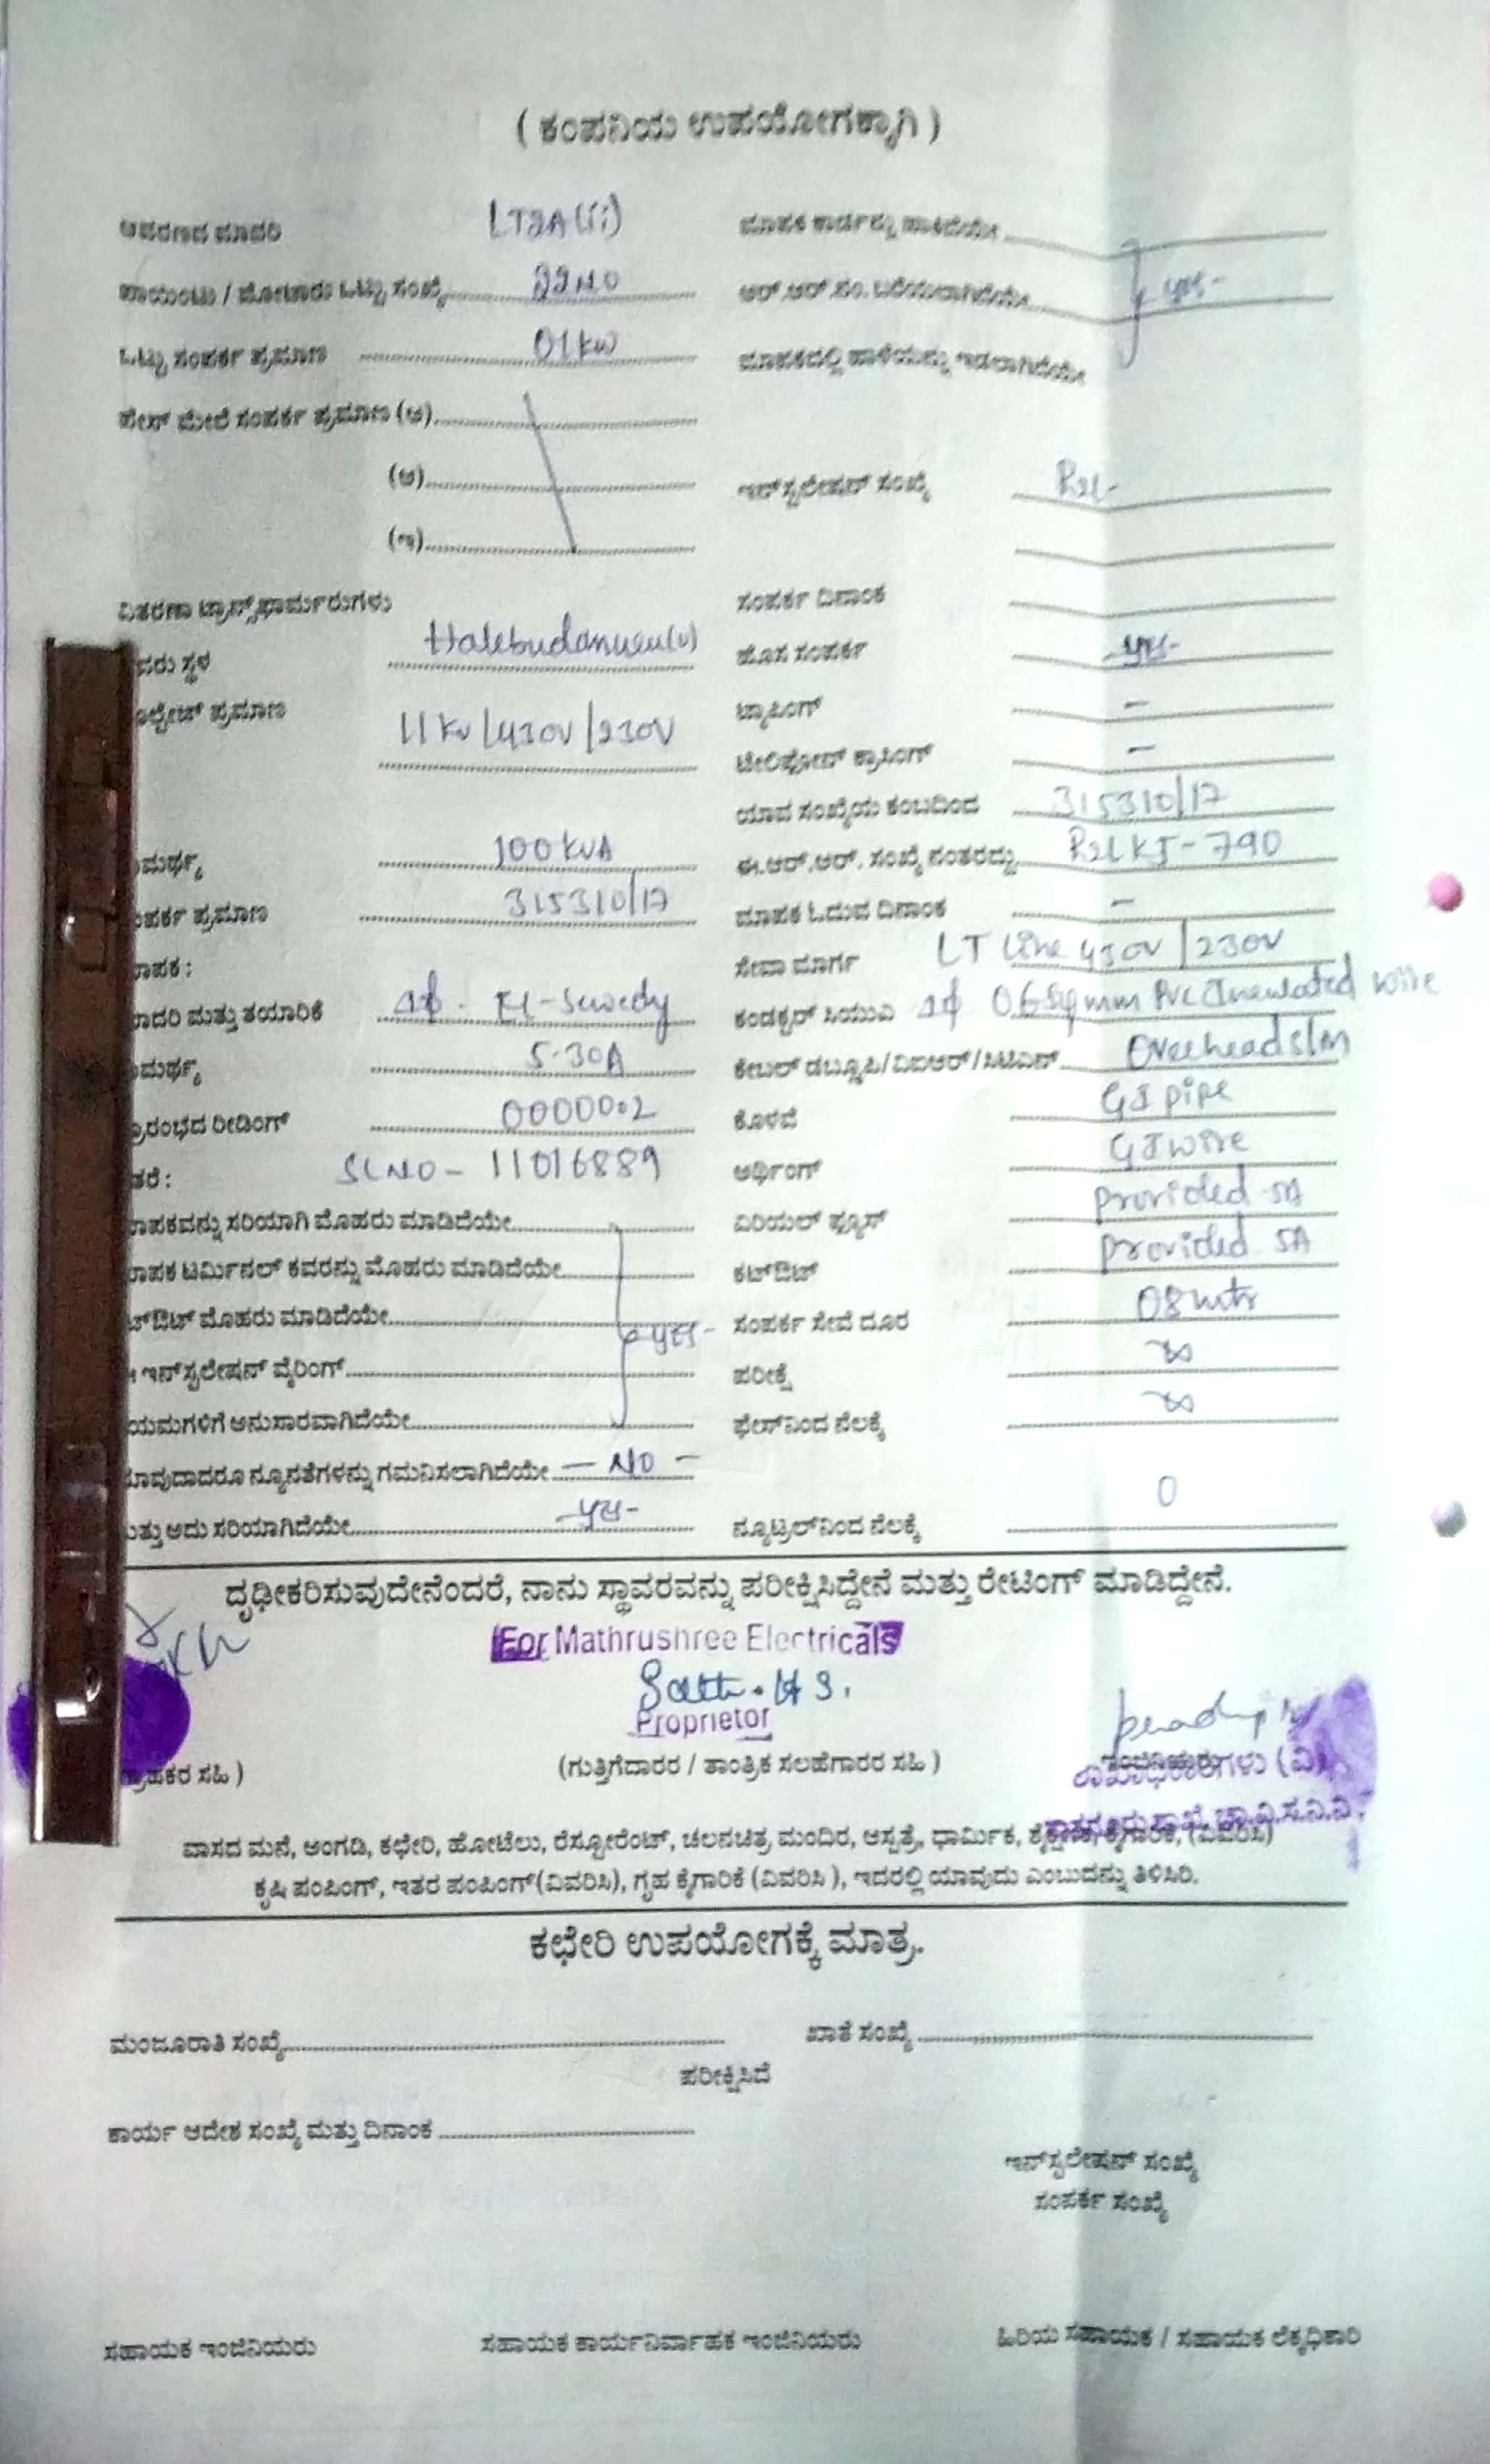 ( ಕಂಪನಿಯ ಉಪಯೋಗಕ್ಕಾಗಿ )
ಆವರಣದ ಮಾದರಿ LT2A(ii) ಮಾಪಕ ಕಾರ್ಡನ್ನು ಹಾಕಿದೆಯೇ
ಪಾಯಿಂಟು / ಮೋಟಾರು ಒಟ್ಟು ಸಂಖ್ಯೆ ಆರ್.ಆರ್.ಸಂ. ಬರೆಯಲಾಗಿದೆಯೇ yes-
ಒಟ್ಟು ಸಂಪರ್ಕ ಪ್ರಮಾಣ 01kw ಮಾಪಕದಲ್ಲಿ ಹಾಳೆಯನ್ನು ಇಡಲಾಗಿದೆಯೇ
ಫೇಸ್ ಮೇಲೆ ಸಂಪರ್ಕ ಪ್ರಮಾಣ (ಅ)
(ಆ) ಇನ್‌ಸ್ಟಲೇಷನ್ ಸಂಖ್ಯೆ
(ಇ)
ವಿತರಣಾ ಟ್ರಾನ್ಸ್‌ಫಾರ್ಮರುಗಳು ಸಂಪರ್ಕ ದಿನಾಂಕ
ಸ್ಥಳ ಹೊಸ ಸಂಪರ್ಕ yes-
ಪ್ರಮಾಣ 11kv/430V/230V ಟ್ಯಾಪಿಂಗ್ –
ಟೆಲಿಫೋನ್ ಕ್ರಾಸಿಂಗ್ –
ಯಾವ ಸಂಖ್ಯೆಯ ಕಂಬದಿಂದ 315310/17
100 KVA ಈ.ಆರ್.ಆರ್. ಸಂಖ್ಯೆ ನಂತರದ್ದು R2LKJ-790
ಪ್ರಮಾಣ 315310/17 ಮಾಪಕ ಓದುವ ದಿನಾಂಕ –
ಸೇವಾ ಮಾರ್ಗ LT Line 430V/230V
ಮತ್ತು ತಯಾರಿಕೆ 1ϕ. El-Sewedy ಕಂಡಕ್ಟರ್ ಸಿಯುವಿ 1ϕ 06 Sqmm PVC Insulated wire
5-30A ಕೇಬಲ್ ಡಬ್ಲ್ಯೂಪಿ/ವಿಐಆರ್/ಸಿಟಿಎಸ್ Overhead
ರೀಡಿಂಗ್ 0000002 ಕೊಳವೆ GI pipe
SLNO- 11016889 ಅರ್ಥಿಂಗ್ GI wire
ಸರಿಯಾಗಿ ಮೊಹರು ಮಾಡಿದೆಯೇ ಏರಿಯಲ್ ಫ್ಯೂಸ್ provided 5A
ಟರ್ಮಿನಲ್ ಕವರನ್ನು ಮೊಹರು ಮಾಡಿದೆಯೇ ಕಟ್‌ಔಟ್ provided 5A
ಮೊಹರು ಮಾಡಿದೆಯೇ yes- ಸಂಪರ್ಕ ಸೇವೆ ದೂರ 08 mtr
ಇನ್‌ಸ್ಟಲೇಷನ್ ವೈರಿಂಗ್ ಪರೀಕ್ಷೆ ∞
ಅನುಸಾರವಾಗಿದೆಯೇ ಫೇಸ್‌ನಿಂದ ನೆಲಕ್ಕೆ ∞
ನ್ಯೂನತೆಗಳನ್ನು ಗಮನಿಸಲಾಗಿದೆಯೇ – NO –
ಅದು ಸರಿಯಾಗಿದೆಯೇ yes- ನ್ಯೂಟ್ರಲ್‌ನಿಂದ ನೆಲಕ್ಕೆ 0
ದೃಢೀಕರಿಸುವುದೇನೆಂದರೆ, ನಾನು ಸ್ಥಾವರವನ್ನು ಪರೀಕ್ಷಿಸಿದ್ದೇನೆ ಮತ್ತು ರೇಟಿಂಗ್ ಮಾಡಿದ್ದೇನೆ.
For Mathrushree Electricals
Proprietor
ಸಹಿ ) (ಗುತ್ತಿಗೆದಾರರ / ತಾಂತ್ರಿಕ ಸಲಹೆಗಾರರ ಸಹಿ )
ವಾಸದ ಮನೆ, ಅಂಗಡಿ, ಕಛೇರಿ, ಹೋಟೆಲು, ರೆಸ್ಟೋರೆಂಟ್, ಚಲನಚಿತ್ರ ಮಂದಿರ, ಆಸ್ಪತ್ರೆ, ಧಾರ್ಮಿಕ, ಶೈಕ್ಷಣಿಕ, ಕೈಗಾರಿಕೆ, (ವಿವರಿಸಿ)
ಕೃಷಿ ಪಂಪಿಂಗ್, ಇತರ ಪಂಪಿಂಗ್(ವಿವರಿಸಿ), ಗೃಹ ಕೈಗಾರಿಕೆ (ವಿವರಿಸಿ ), ಇದರಲ್ಲಿ ಯಾವುದು ಎಂಬುದನ್ನು ತಿಳಿಸಿರಿ.
ಕಛೇರಿ ಉಪಯೋಗಕ್ಕೆ ಮಾತ್ರ.
ಮಂಜೂರಾತಿ ಸಂಖ್ಯೆ ಖಾತೆ ಸಂಖ್ಯೆ
ಪರೀಕ್ಷಿಸಿದೆ
ಕಾರ್ಯ ಆದೇಶ ಸಂಖ್ಯೆ ಮತ್ತು ದಿನಾಂಕ
ಇನ್‌ಸ್ಟಲೇಷನ್ ಸಂಖ್ಯೆ
ಸಂಪರ್ಕ ಸಂಖ್ಯೆ
ಸಹಾಯಕ ಇಂಜಿನಿಯರು ಸಹಾಯಕ ಕಾರ್ಯನಿರ್ವಾಹಕ ಇಂಜಿನಿಯರು ಹಿರಿಯ ಸಹಾಯಕ / ಸಹಾಯಕ ಲೆಕ್ಕಾಧಿಕಾರಿ